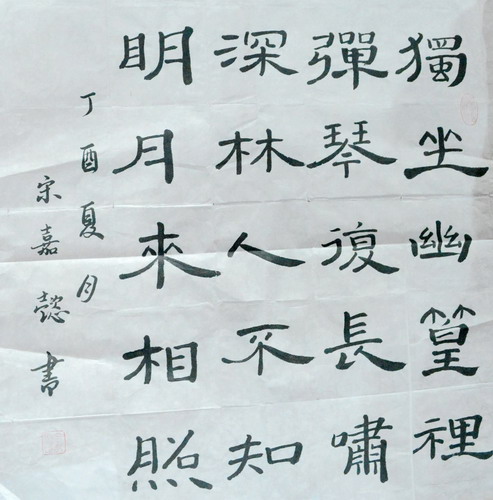 獨坐幽篁裡
彈琴復長嘯
深林人不知
明月來相照
丁酉夏月
宋嘉懿書